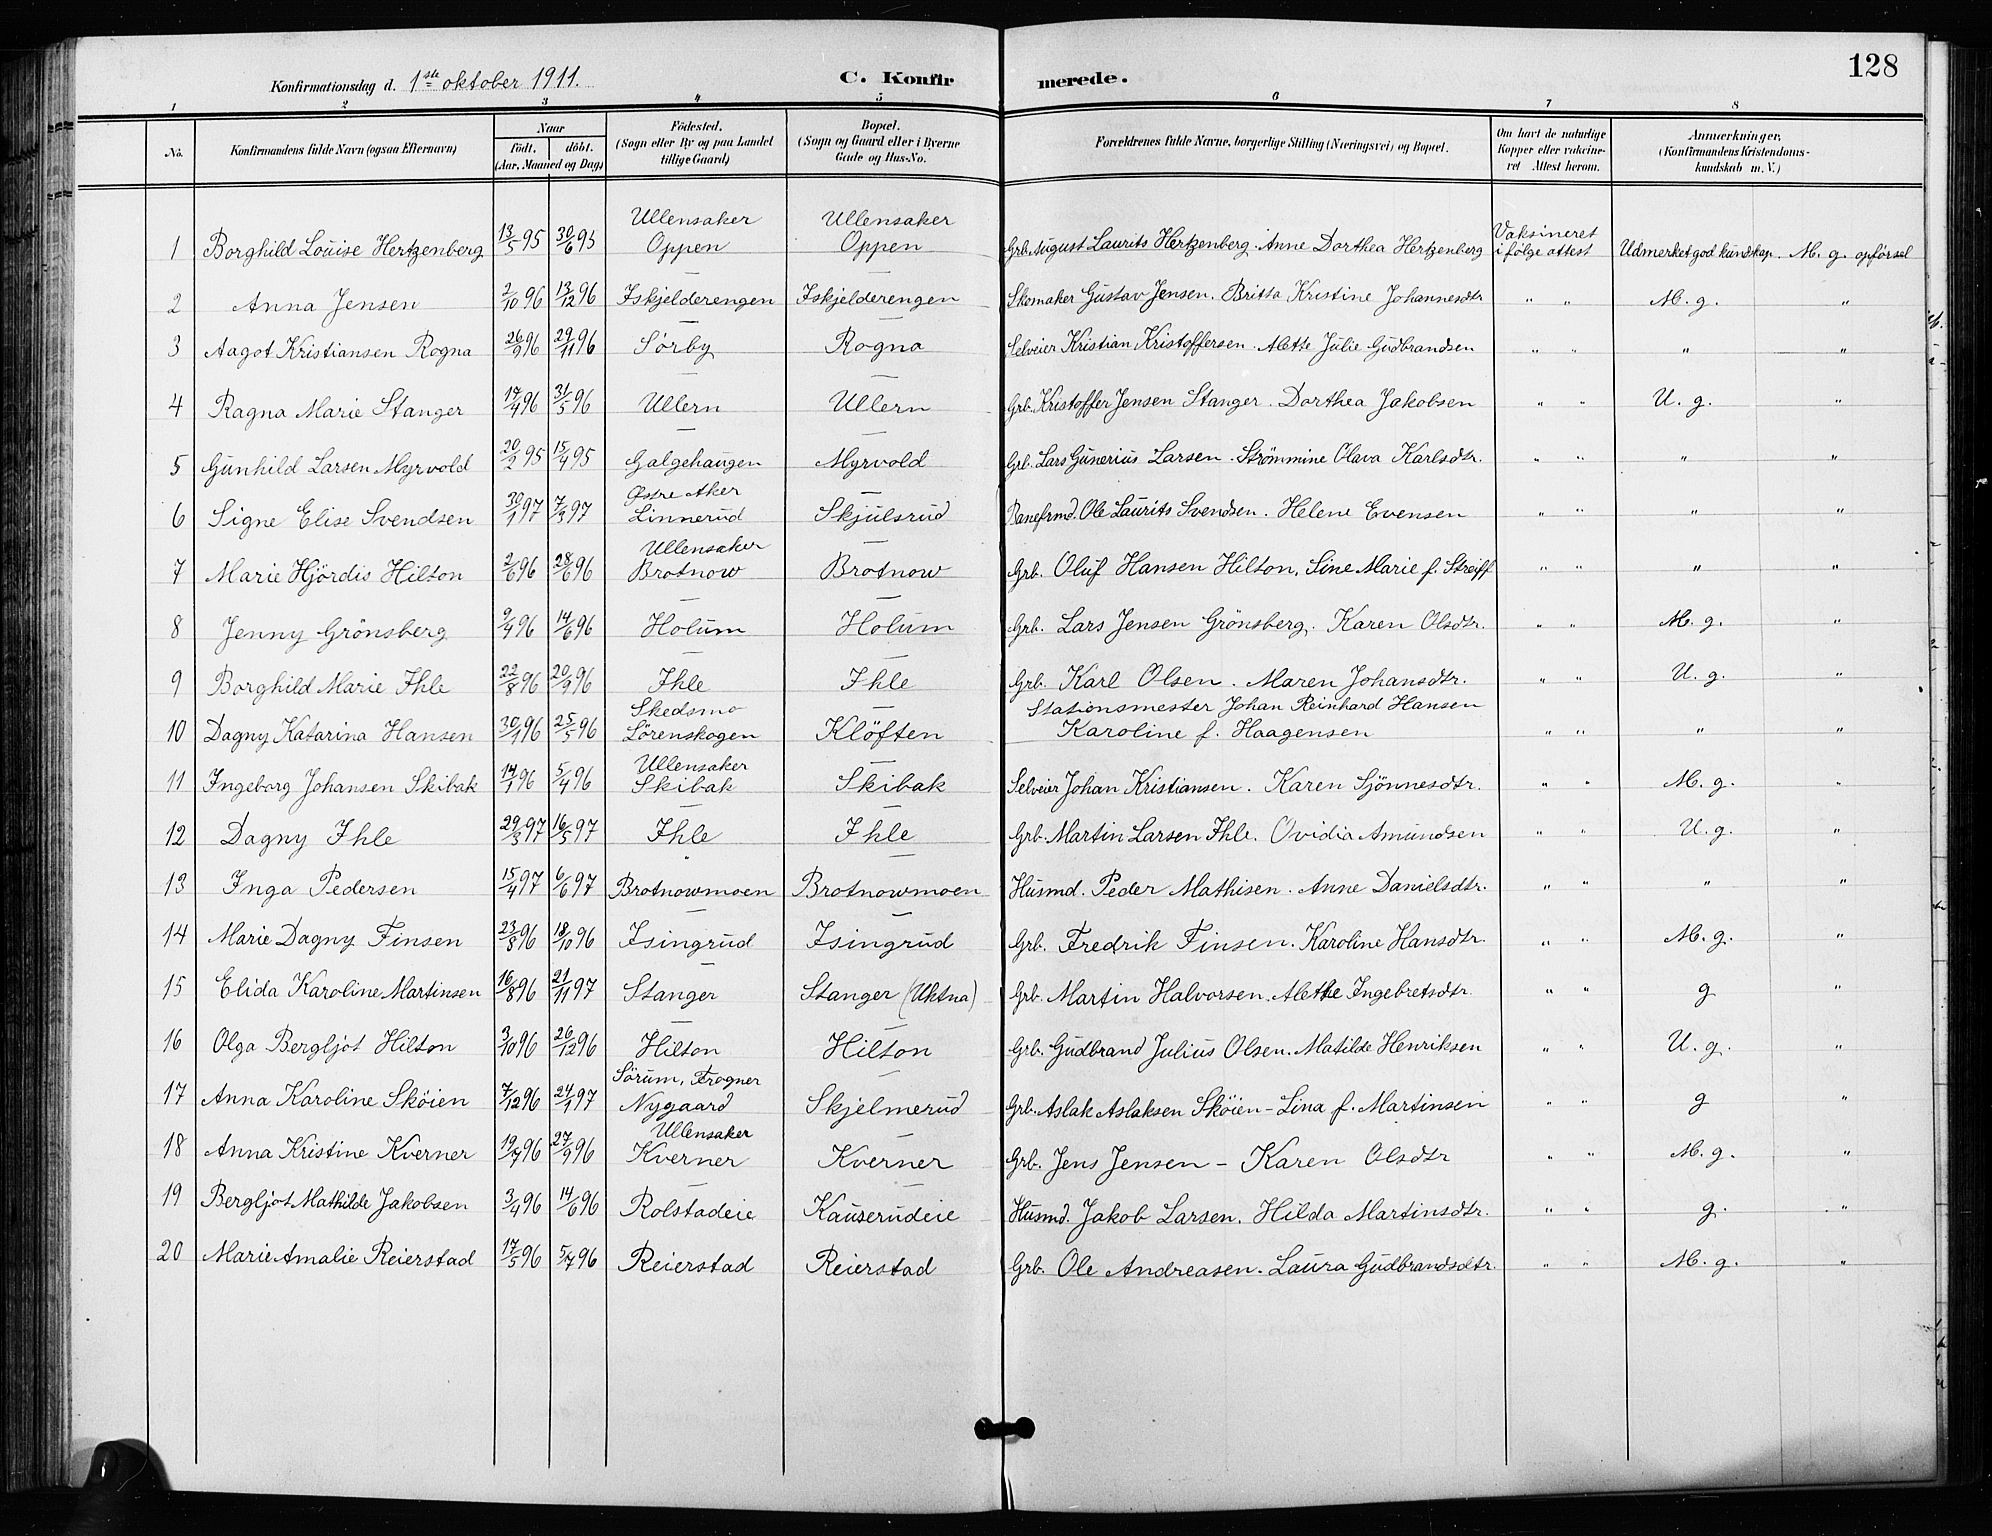 128
Konfirmationsdag d. 1ste oktober 1911. C. Konfirmerede.
1 2 3 4 5 6 7 8
No. Konfirmandens fulde Navn (ogsaa Efternavn) Naar födt. döbt. (Aar, Maaned og Dag) Födested. (Sogn eller By og paa Landet tillige Gaard) Bopæl. (Sogn og Gaard eller i Byerne Gade og Hus-No. Forældrenes fulde Navne, borgerlige Stilling (Næringsvei) og Bopæl. Om havt de naturlige Kopper eller vakcineret Attest herom. Anmærkninger, (Konfirmandens Kristendomskundskab m. V.)
1 Borghild Louise Hertzenberg 13/5 95 30/6 95 Ullensaker Oppen Ullensaker Oppen Grb. August Laurits Hertzenberg. Anne Dorthea Hertzenberg Vaksineret i følge attest Udmerket god kundskap. M. g. opførsel
2 Anna Jensen 2/10 96 13/12 96 — Iskjelderengen — Iskjelderengen Skomaker Gustav Jensen. Britta Kristine Johannesdtr " " M. g. "
3 Aagot Kristiansen Rogna 26/9 96 29/11 96 — Sørby — Rogna Selveier Kristian Kristoffersen. Mette Julie Gudbrandsen " " " "
4 Ragna Marie Stanger 17/4 96 31/5 96 — Ullern — Ullern Grb. Kristoffer Jensen Stanger. Dorthea Jakobsen " " U. g. "
5 Gunhild Larsen Myrvold 20/2 95 15/4 95 — Galgehaugen Myrvold Grb. Lars Gunerius Larsen. Strømmine Olava Karlsdtr. " " " "
6 Signe Elise Svendsen 30/1 97 7/3 97 Østre Aker Linnerud — Skjulsrud Banefrmd. Ole Laurits Svendsen. Helene Evensen " " " "
7 Marie Hjördis Hilton 2/6 96 28/6 96 Ullensaker Brotnow — Brotnow Grb. Oluf Hansen Hilton, Sine Marie f. Streiff " " " "
8 Jenny Grönsberg 9/4 96 14/6 96 — Holum — Holum Grb. Lars Jensen Grönsberg. Karen Olsdtr. " " M. g. "
9 Borghild Marie Ihle 22/8 96 20/9 96 — Ihle — Ihle Grb. Karl Olsen. Maren Johansdtr. " " U. g. "
10 Dagny Katarina Hansen 30/1 96 25/5 96 Skedsmo Lörenskogen — Klöften Stationsmester Johan Reinhard Hansen Karoline f. Haagensen " " " "
11 Ingeborg Johansen Skibak 14/1 96 5/4 96 Ullensaker Skibak — Skibak Selveier Johan Kristiansen. Karen Sjönnesdtr. " " M. g. "
12 Dagny Ihle 29/3 97 16/5 97 — Ihle — Ihle Grb. Martin Larsen Ihle. Ovidia Amundsen " " U. g. "
13 Inga Pedersen 15/4 97 6/6 97 " Brotnowmoen — Brotnowmoen Husmd. Peder Mathisen. Anne Danielsdtr. " " " "
14 Marie Dagny Finsen 23/8 96 18/10 96 — Isingrud — Isingrud Grb. Fredrik Finsen. Karoline Hansdtr. " " M. g. "
15 Elida Karoline Martinsen 16/8 96 21/11 97 — Stanger Stanger (Uktna) Grb. Martin Halvorsen. Alethe Ingebretsdtr. " " g "
16 Olga Bergljot Hilton 3/10 96 26/12 96 — Hilton — Hilton Grb. Gudbrand Julius Olsen. Matilde Henriksen " " U. g. "
17 Anna Karoline Sköien 7/12 96 24/1 97 Sörum, Frogner Nygaard — Skjelmerud Grb. Aslak Aslaksen Sköien – Lina f. Martinsen " " g "
18 Anna Kristine Kverner 19/7 96 27/9 96 Ullensaker Kverner — Kverner Grb. Jens Jensen – Karen Olsdtr " " M. g. "
19 Bergljot Mathilde Jakobsen 3/4 96 14/6 96 — Rolstadeie — Kauserudeie Husmd. Jakob Larsen. Hilda Martinsdtr. " " g. "
20 Marie Amalie Reierstad 17/5 96 5/7 96 — Reierstad — Reierstad Grb. Ole Andreasen. Laura Gudbrandsdtr. " " M. g. "